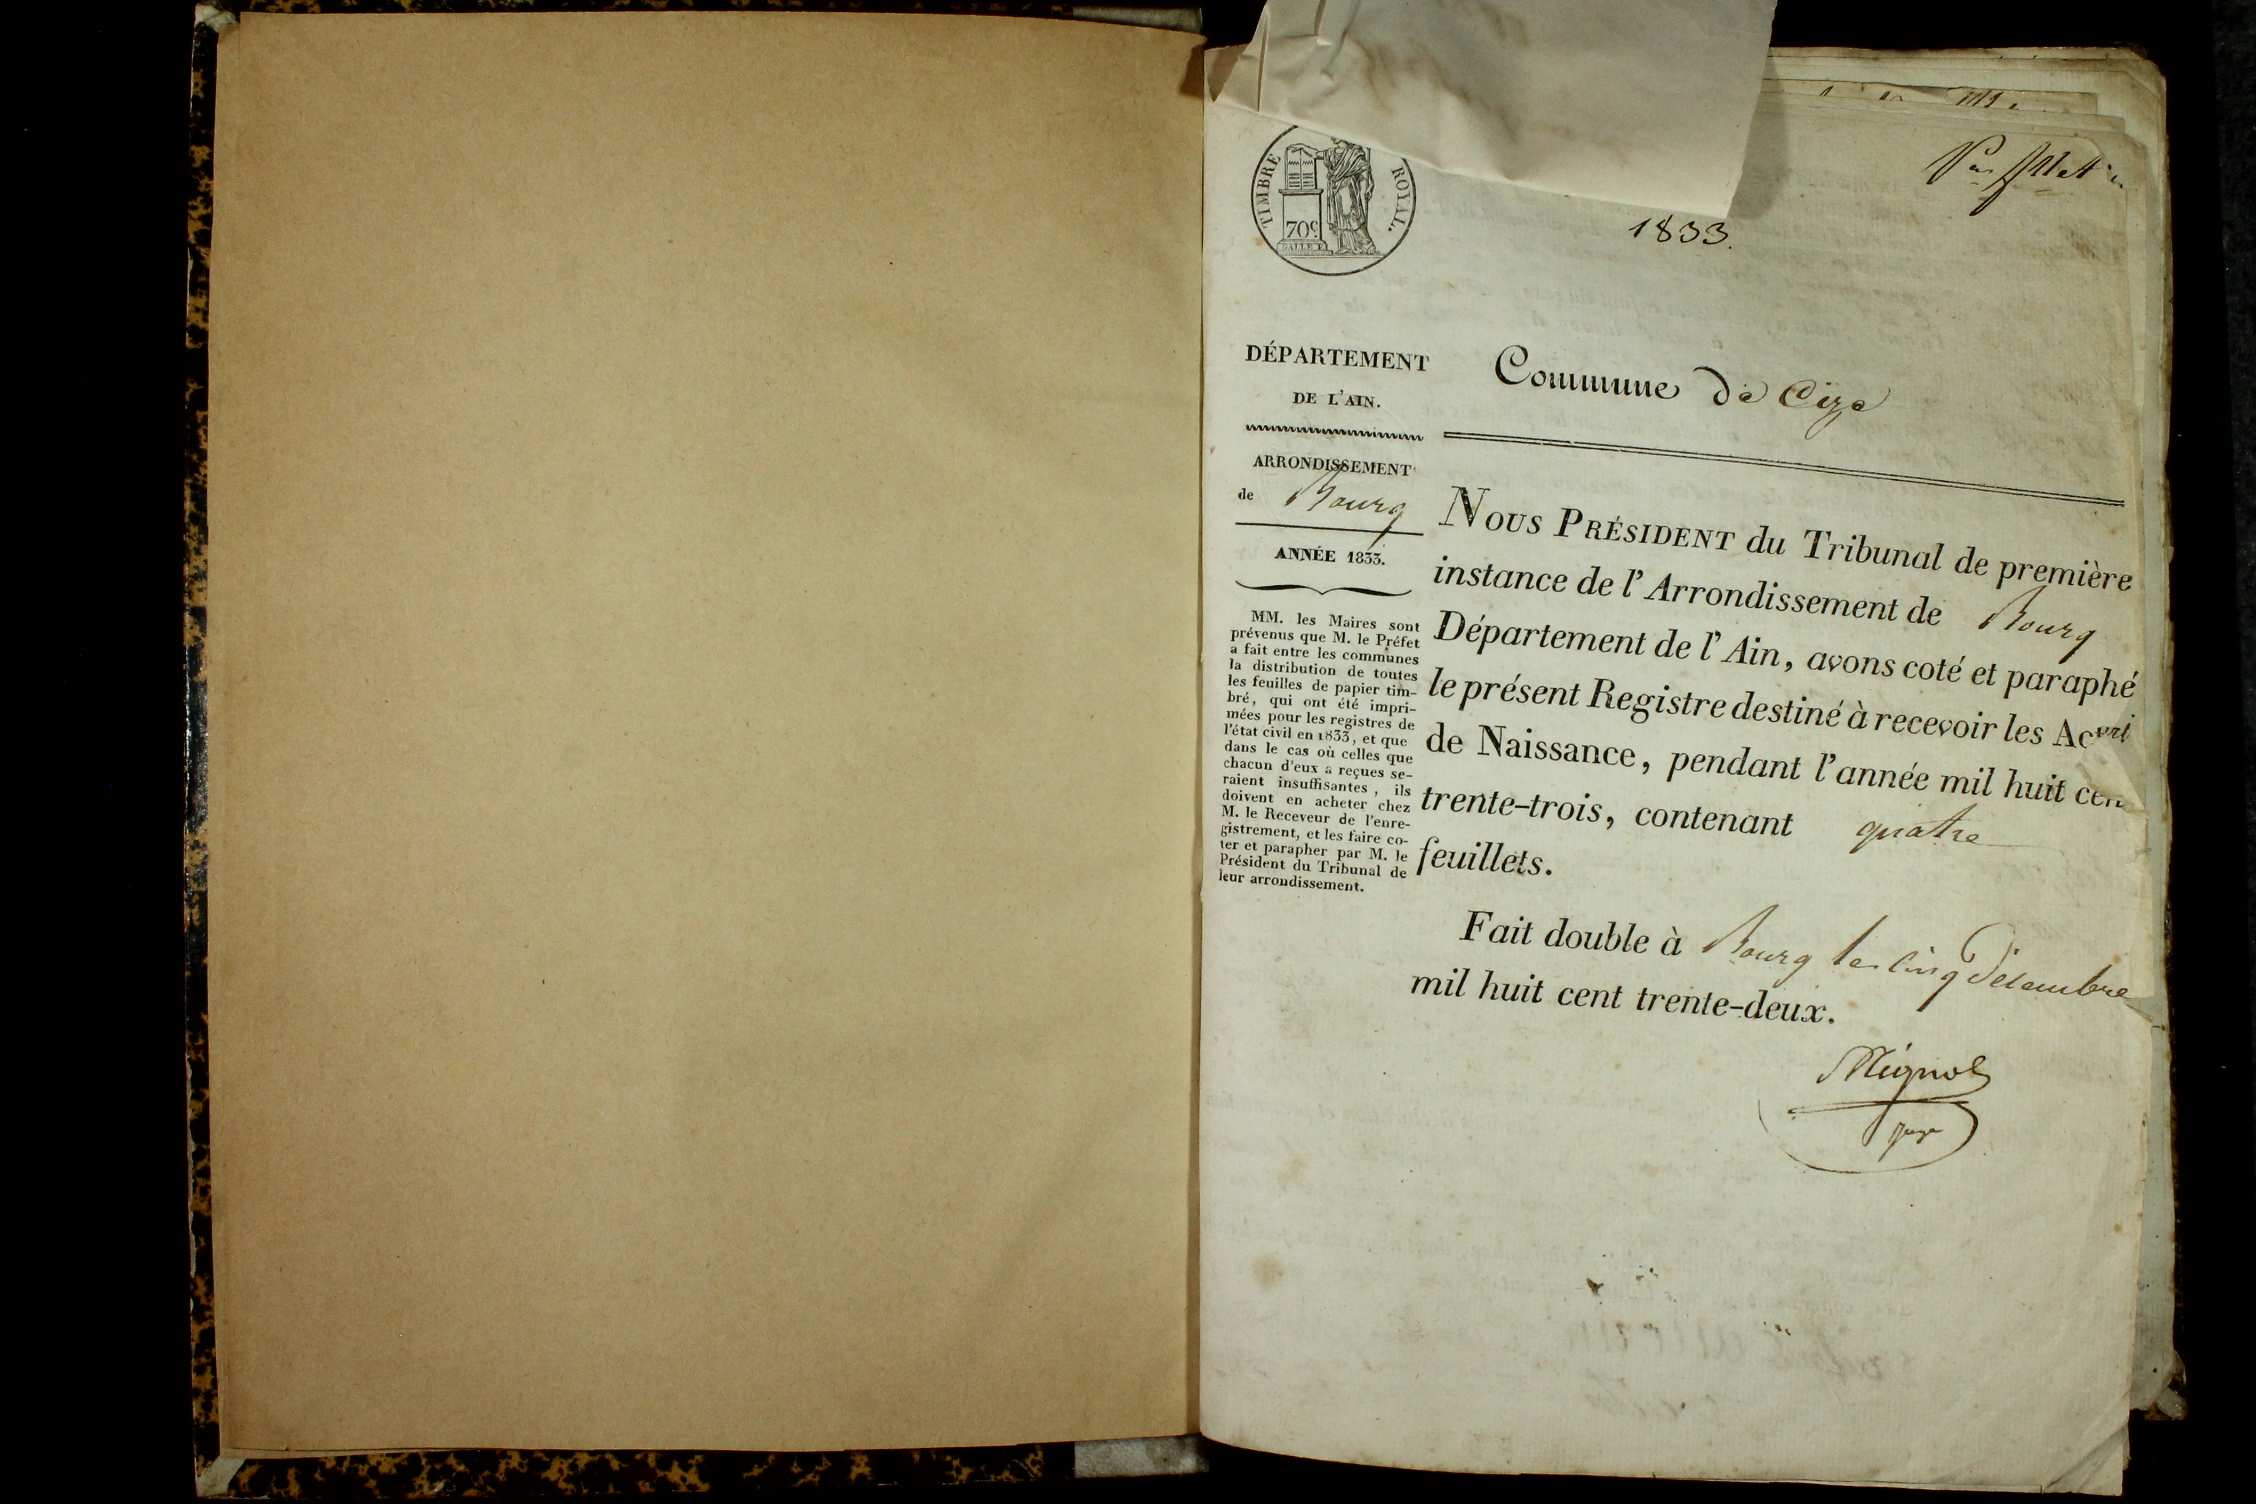 TIMBRE ROYAL.
70c
1833.
DÉPARTEMENT
DE L'AIN.
Commune de Cize
ARRONDISSEMENT
de Bourg
ANNÉE 1833.
MM. les Maires sont
prévenus que M. le Préfet
a fait entre les communes
la distribution de toutes
les feuilles de papier tim-
bré, qui ont été impri-
mées pour les registres de
l'état civil en 1833, et que
dans le cas où celles que
chacun d'eux a reçues se-
raient insuffisantes, ils
doivent en acheter chez
M. le Receveur de l'enre-
gistrement, et les faire co-
ter et parapher par M. le
Président du Tribunal de
leur arrondissement.
NOUS PRÉSIDENT du Tribunal de première
instance de l'Arrondissement de Bourg
Département de l'Ain, avons coté et paraphé
le présent Registre destiné à recevoir les Ac
de Naissance, pendant l'année mil huit cen
trente-trois, contenant quatre
feuillets.
Fait double à Bourg le cinq Décembre
mil huit cent trente-deux.
juge